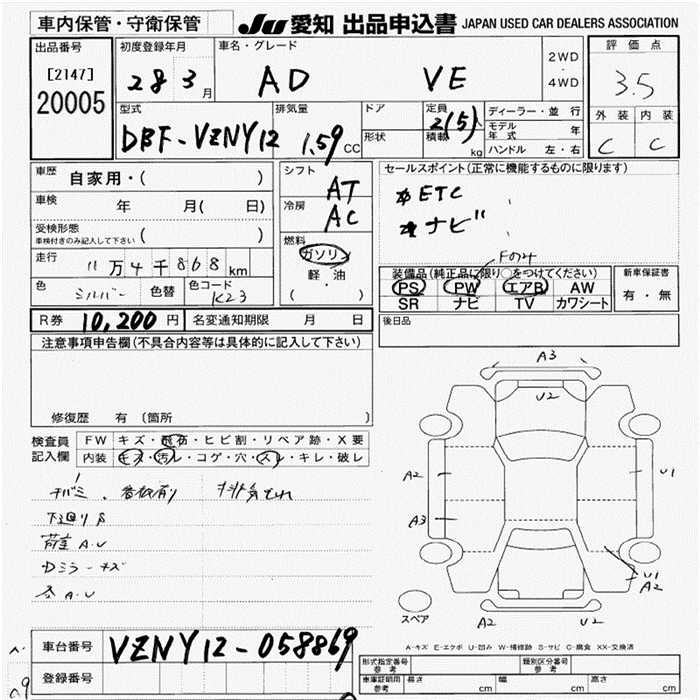 車内保管・守衛保管
JU 愛知 出品申込書 JAPAN USED CAR DEALERS ASSOCIATION
出品番号
[2147]
20005
初度登録年月
28 3月
車名・グレード
AD VE
2WD
・
4WD
評価点
3.5
外装 内装
C C
型式
DBF-VZNY12
排気量
1.59 CC
ドア
形状
定員
積載
2(5)人
kg
ディーラー・並行
モデル年式 年
ハンドル 左・右
車歴 自家用・( )
車検 年 月( 日)
受検形態
車検付きのみ記入して下さい ( )
走行 11万4千868km
色 シルバー 色替 色コード K23
シフト AT
冷房 AC
燃料
ガソリン
軽・油
( )
セールスポイント(正常に機能するものに限ります)
ETC
ナビ
装備品(純正品に限り○をつけてください)
PS PW エアB AW
SR ナビ TV カワシート
新車保証書
有・無
R券 10,200円 名変通知期限 月 日
後日品
注意事項申告欄(不具合内容等は具体的に記入して下さい)
修復歴 有 〔箇所 〕
検査員記入欄
FW キズ・飛石・ヒビ割・リペア跡・X要
内装 キズ・汚レ・コゲ・穴・スレ・キレ・破レ
下廻りS
荷室A.U
Dミラーキズ
A.U
A3
U2
A2
A3
U1
U1
A2
A2
U2
スペア
A-キズ E-エクボ U-凹み W-補修跡 S-サビ C-腐食 XX-交換済
車台番号 VZNY12-058869
登録番号
形式指定番号 参考
類別区分番号 参考
車庫証明用 参考
長さ cm
幅 cm
高さ cm